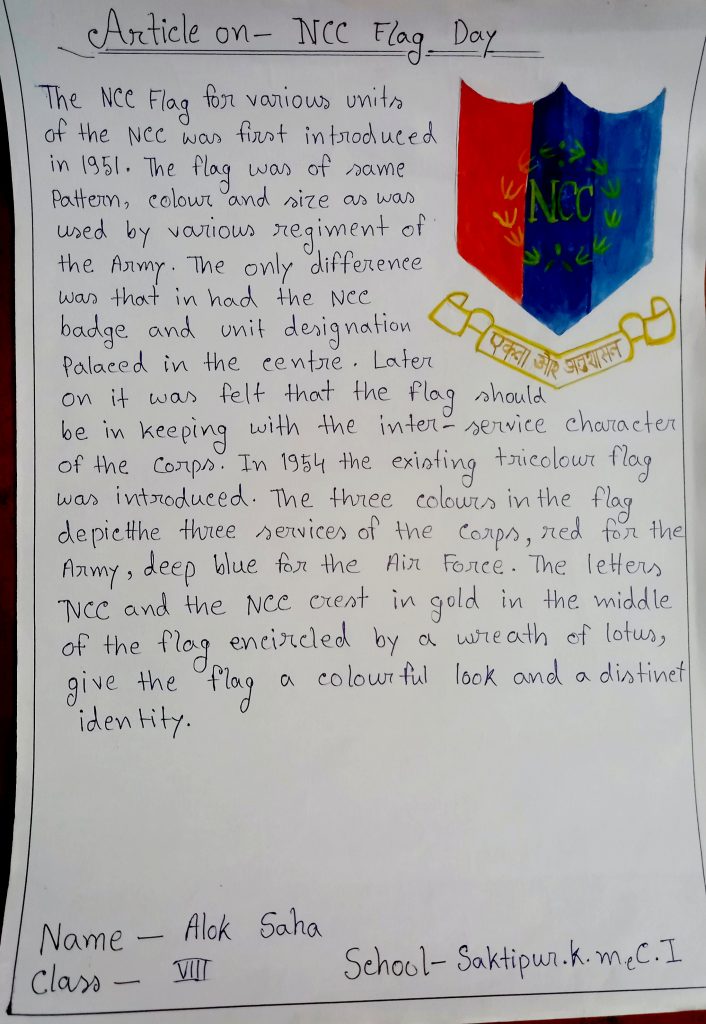 Article on - NCC Flag Day
The NCC Flag for various units
of the NCC was first introduced
in 1951. The flag was of same
Pattern, colour and size as was
used by various regiment of
the Army. The only difference
was that in had the NCC
badge and unit designation
Palaced in the centre. Later
on it was felt that the flag should
be in keeping with the inter-service character
of the Corps. In 1954 the existing tricolour flag
was introduced. The three colours in the flag
depictthe three services of the Corps, red for the
Army, deep blue for the Air Force. The letters
NCC and the NCC crest in gold in the middle
of the flag encircled by a wreath of lotus,
give the flag a colourful look and a distinct
identity.
NCC
एकता और अनुशासन
Name - Alok Saha
Class - VIII
School - Saktipur.k.m.C.I